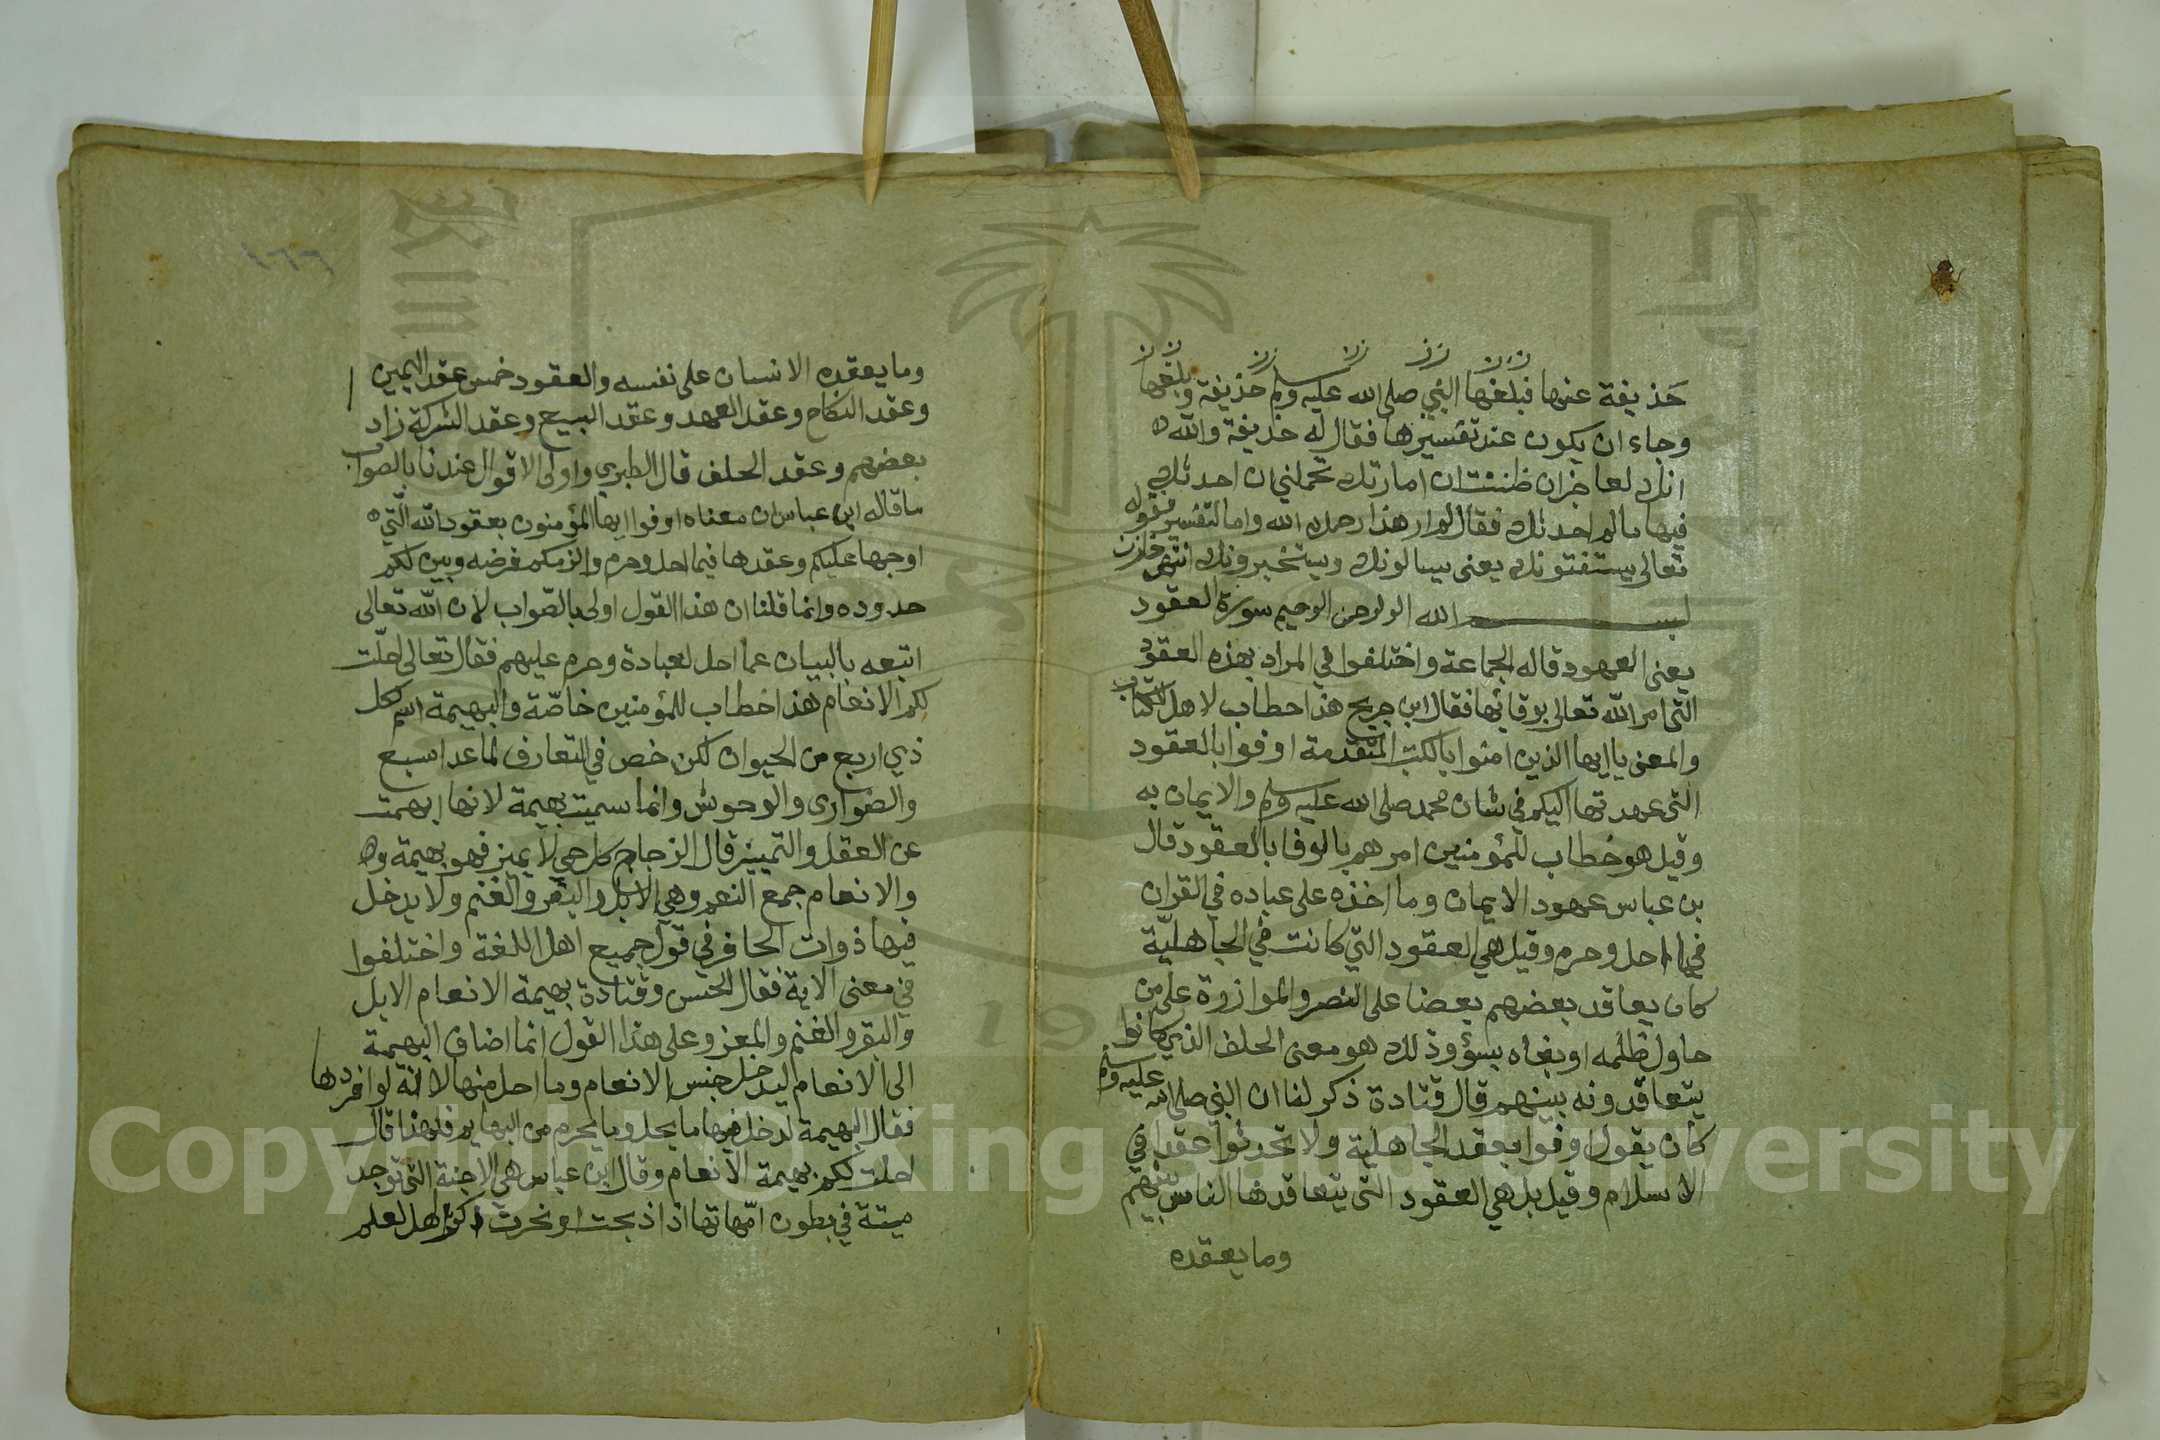 حذيفة عنها فبلغها النبي صلى الله عليه وسلم حذيفة وبلغها
وجاء ان يكون عند تفسيرها فقال له حذيفة والله
انك لعاجز ان ظننت ان امارتك تحملني ان احدثك
فيها ما لم احدثك فقال لم ار هذا رحمك الله واما التفسير فقوله
تعالى يستفتونك يعنى يسالونك ويستخبرونك انتهى خازن
بسم الله الرحمن الرحيم سورة العقود
يعنى العهود قاله الجماعة واختلفوا في المراد بهذه العقود
التى امر الله تعالى بوفائها فقال ابن جريج هذا خطاب لاهل الكتاب
والمعنى يا ايها الذين امنوا بالكتب المتقدمة اوفوا بالعقود
التى عهدتها اليكم في شان محمد صلى الله عليه وسلم والايمان به
وقيل هو خطاب للمؤمنين امرهم بالوفا بالعقود قال
بن عباس عهود الايمان وما اخذه على عباده في القران
فيما احل وحرم وقيل هي العقود التي كانت في الجاهلية
كان يعاقد بعضهم بعضا على النصر والموازرة على من
حاول ظلمه او بغاه بسؤ وذلك هو معنى الحلف الذي كانوا
يتعاقدونه بينهم قال قتادة ذكر لنا ان النبي صلى الله عليه وسلم
كان يقول اوفوا بعقد الجاهلية ولا تحدثوا عقدا في
الاسلام وقيل بل هي العقود التى يتعاقدها الناس بينهم
وما يعقده
١٦٦
وما يعقده الانسان على نفسه والعقود خمس عقد اليمين
وعقد النكاح وعقد العهد وعقد البيع وعقد الشركة زاد
بعضهم وعقد الحلف قال الطبري واولى الاقوال عندنا بالصواب
ما قاله ابن عباس ان معناه اوفوا ايها المؤمنون بعقود الله التي
اوجبها عليكم وعقدها فيما احل وحرم والزمكم فرضه وبين لكم
حدوده وانما قلنا ان هذا القول اولى بالصواب لان الله تعالى
اتبعه بالبيان عما احل لعبادة وحرم عليهم فقال تعالى احلت
لكم الانعام هذا خطاب للمؤمنين خاصة والبهيمة اسم لكل
ذي اربع من الحيوان لكن خص في التعارف لما عدا سبع
والضوارى والوحوش وانما سميت بهيمة لانها ابهمت
عن العقل والتمييز قال الزجاج كل حي لا يميز فهو بهيمة
والانعام جمع النعم وهي الابل والبقر والغنم ولا يدخل
فيها ذوات الحافر في قول جميع اهل اللغة واختلفوا
في معنى الاية فقال الحسن وقتادة بهيمة الانعام الابل
والبقر والغنم والمعز وعلى هذا القول انما اضاف البهيمة
الى الانعام ليدخل جنس الانعام وما احل منها لانه لو افردها
فقال البهيمة لدخل فيها ما يحل وما يحرم من البهايم فلهذا قال
احلت لكم بهيمة الانعام وقال ابن عباس هي الاجنة التى توجد
ميتة في بطون امهاتها اذا ذبحت او نحرت اكثر اهل العلم
Copyright © King Saud University